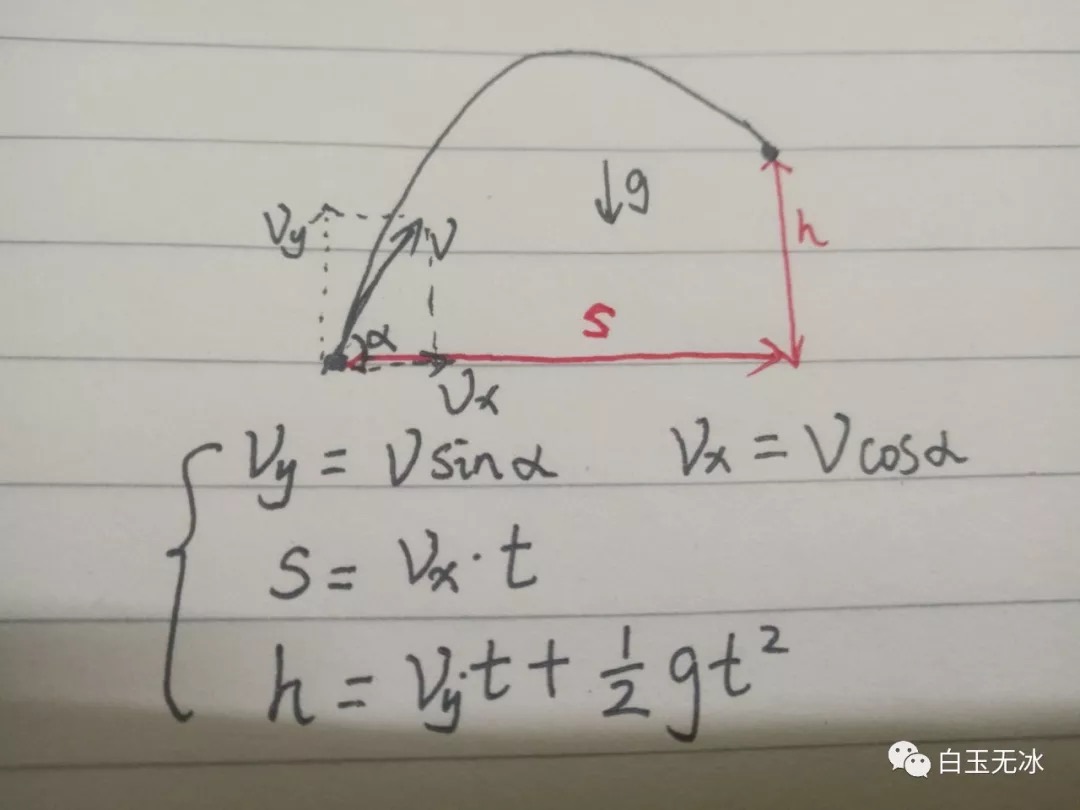 g
Vy
V
h
α
s
Vx
Vy = V sinα Vx = V cosα
s = Vx · t
h = Vy·t + 1/2 gt²
白玉无冰